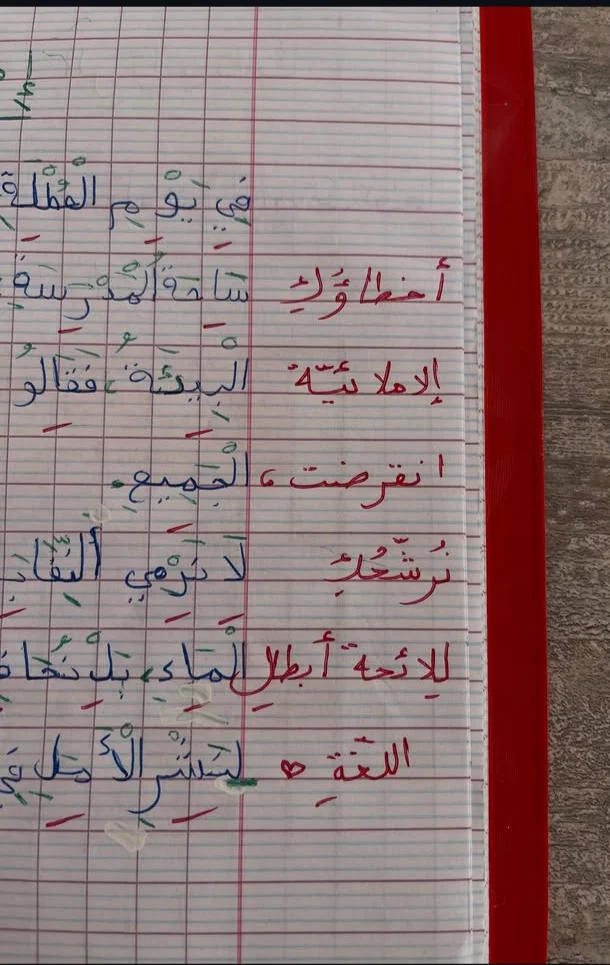 في يَوْمِ العُطْلَة
أخطاؤُكِ سَاحَةَ الْمَدْرَسَةِ
إلاملائيّة البِيئَة، فَقَالُو
انقرضت، الْجَمِيع.
نُرشّحُكِ لَا نَرْمِي النِّفَايَ
للائحة أبطال الْمَاءِ، بَلْ نُحَا
اللغة لِنَنْشُرَ الأَمَلَ فِي